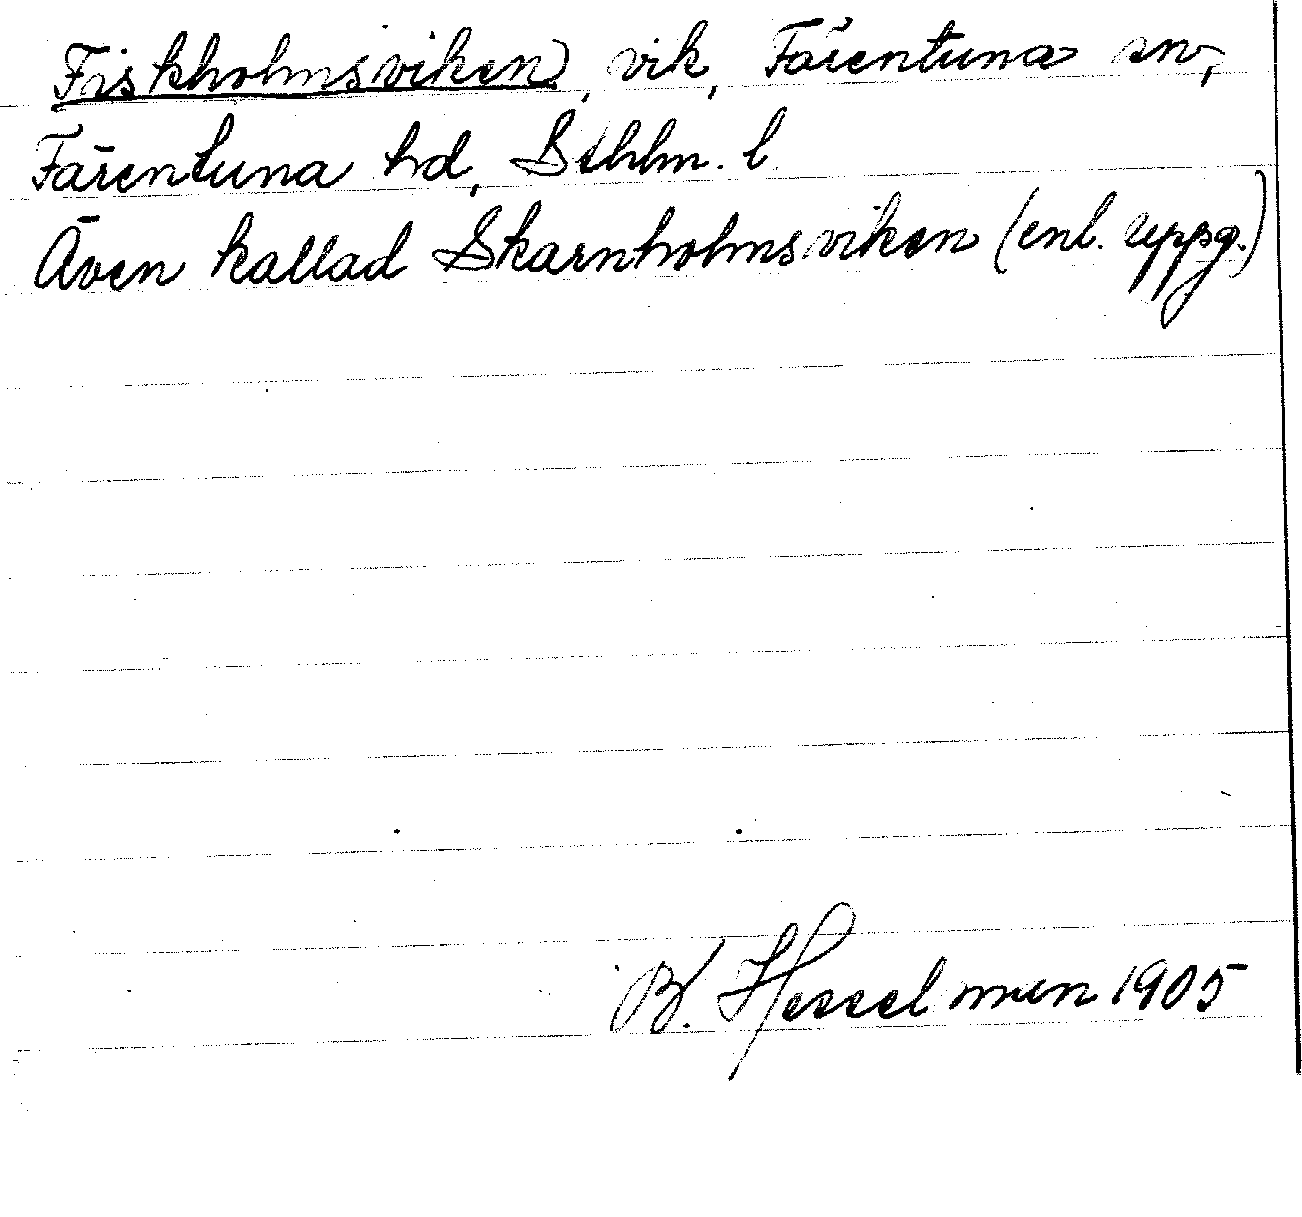 Fiskholmsviken, vik, Färentuna sn,
Färentuna hd, Sthlm. l.
Även kallad Skarnholmsviken (enl. uppg.)
B. Hesselman 1905